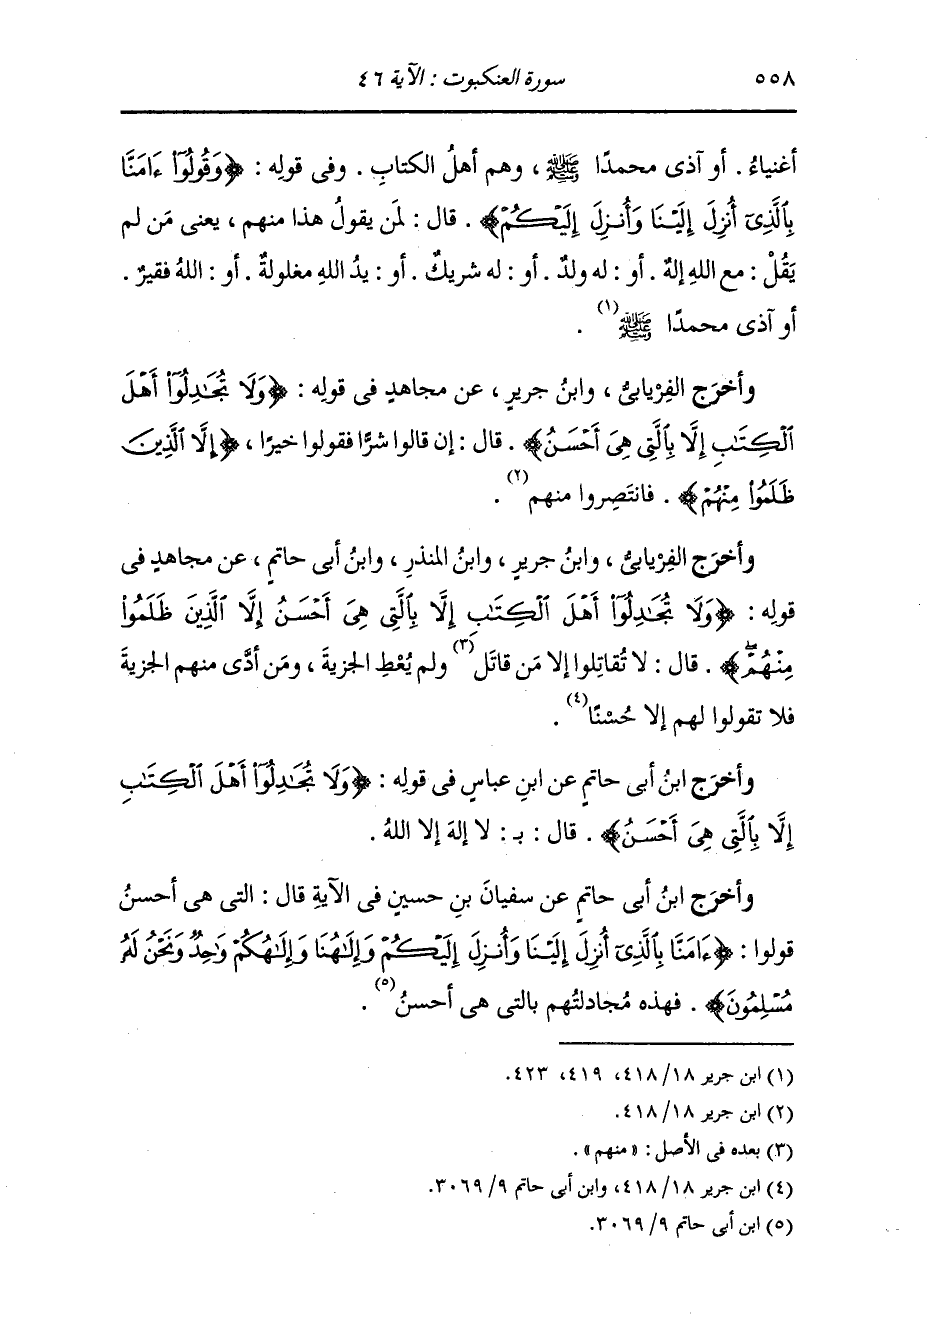 ٥٥٨ سورة العنكبوت : الآية ٤٦
أغنياءُ . أو آذى محمدًا ﷺ ، وهم أهلُ الكتابِ . وفى قولِه : ﴿وَقُولُوٓا۟ ءَامَنَّا
بِٱلَّذِىٓ أُنزِلَ إِلَيْنَا وَأُنزِلَ إِلَيْكُمْ﴾ . قال : لمَن يقولُ هذا منهم ، يعنى مَن لم
يَقُلْ : مع اللهِ إلهٌ . أو : له ولدٌ . أو : له شريكٌ . أو : يدُ اللهِ مغلولةٌ . أو : اللهُ فقيرٌ .
أو آذى محمدًا ﷺ(١) .
وأخرَج الفِرْيابىُّ ، وابنُ جريرٍ ، عن مجاهدٍ فى قولِه : ﴿وَلَا تُجَٰدِلُوٓا۟ أَهْلَ
ٱلْكِتَٰبِ إِلَّا بِٱلَّتِى هِىَ أَحْسَنُ﴾ . قال : إن قالوا شرًّا فقولوا خيرًا ، ﴿إِلَّا ٱلَّذِينَ
ظَلَمُوا۟ مِنْهُمْ﴾ . فانتَصِروا منهم(٢) .
وأخرَج الفِرْيابىُّ ، وابنُ جريرٍ ، وابنُ المنذرِ ، وابنُ أبى حاتمٍ ، عن مجاهدٍ فى
قولِه : ﴿وَلَا تُجَٰدِلُوٓا۟ أَهْلَ ٱلْكِتَٰبِ إِلَّا بِٱلَّتِى هِىَ أَحْسَنُ إِلَّا ٱلَّذِينَ ظَلَمُوا۟
مِنْهُمْۖ﴾ . قال : لا تُقاتِلوا إلا مَن قاتَل(٣) ولم يُعْطِ الجزيةَ ، ومَن أدَّى منهم الجزيةَ
فلا تقولوا لهم إلا حُسْنًا(٤) .
وأخرَج ابنُ أبى حاتمٍ عن ابنِ عباسٍ فى قولِه : ﴿وَلَا تُجَٰدِلُوٓا۟ أَهْلَ ٱلْكِتَٰبِ
إِلَّا بِٱلَّتِى هِىَ أَحْسَنُ﴾ . قال : بـ : لا إلهَ إلا اللهُ .
وأخرَج ابنُ أبى حاتمٍ عن سفيانَ بنِ حسينٍ فى الآيةِ قال : التى هى أحسنُ
قولوا : ﴿ءَامَنَّا بِٱلَّذِىٓ أُنزِلَ إِلَيْنَا وَأُنزِلَ إِلَيْكُمْ وَإِلَٰهُنَا وَإِلَٰهُكُمْ وَٰحِدٌ وَنَحْنُ لَهُۥ
مُسْلِمُونَ﴾ . فهذه مُجادلتُهم بالتى هى أحسنُ(٥) .
(١) ابن جرير ١٨/ ٤١٨، ٤١٩، ٤٢٣.
(٢) ابن جرير ١٨/ ٤١٨.
(٣) بعده فى الأصل : «منهم» .
(٤) ابن جرير ١٨/ ٤١٨، وابن أبى حاتم ٩/ ٣٠٦٩.
(٥) ابن أبى حاتم ٩/ ٣٠٦٩.